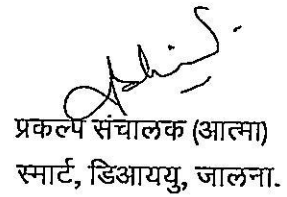 प्रकल्प संचालक (आत्मा)
स्मार्ट, डिआययु, जालना.